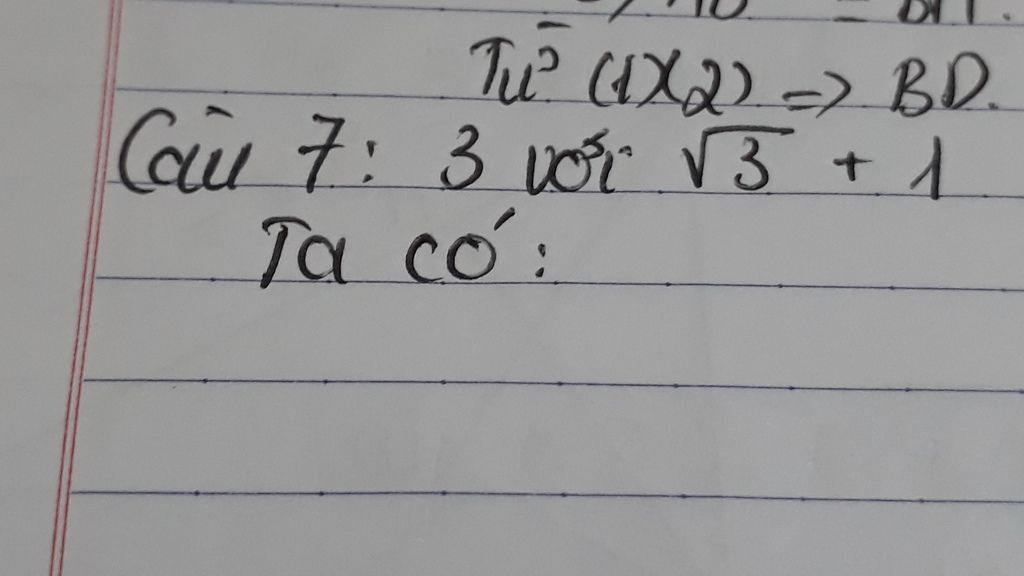 Từ (1)(2) => BD.
Câu 7: 3 với √3 + 1
Ta có: